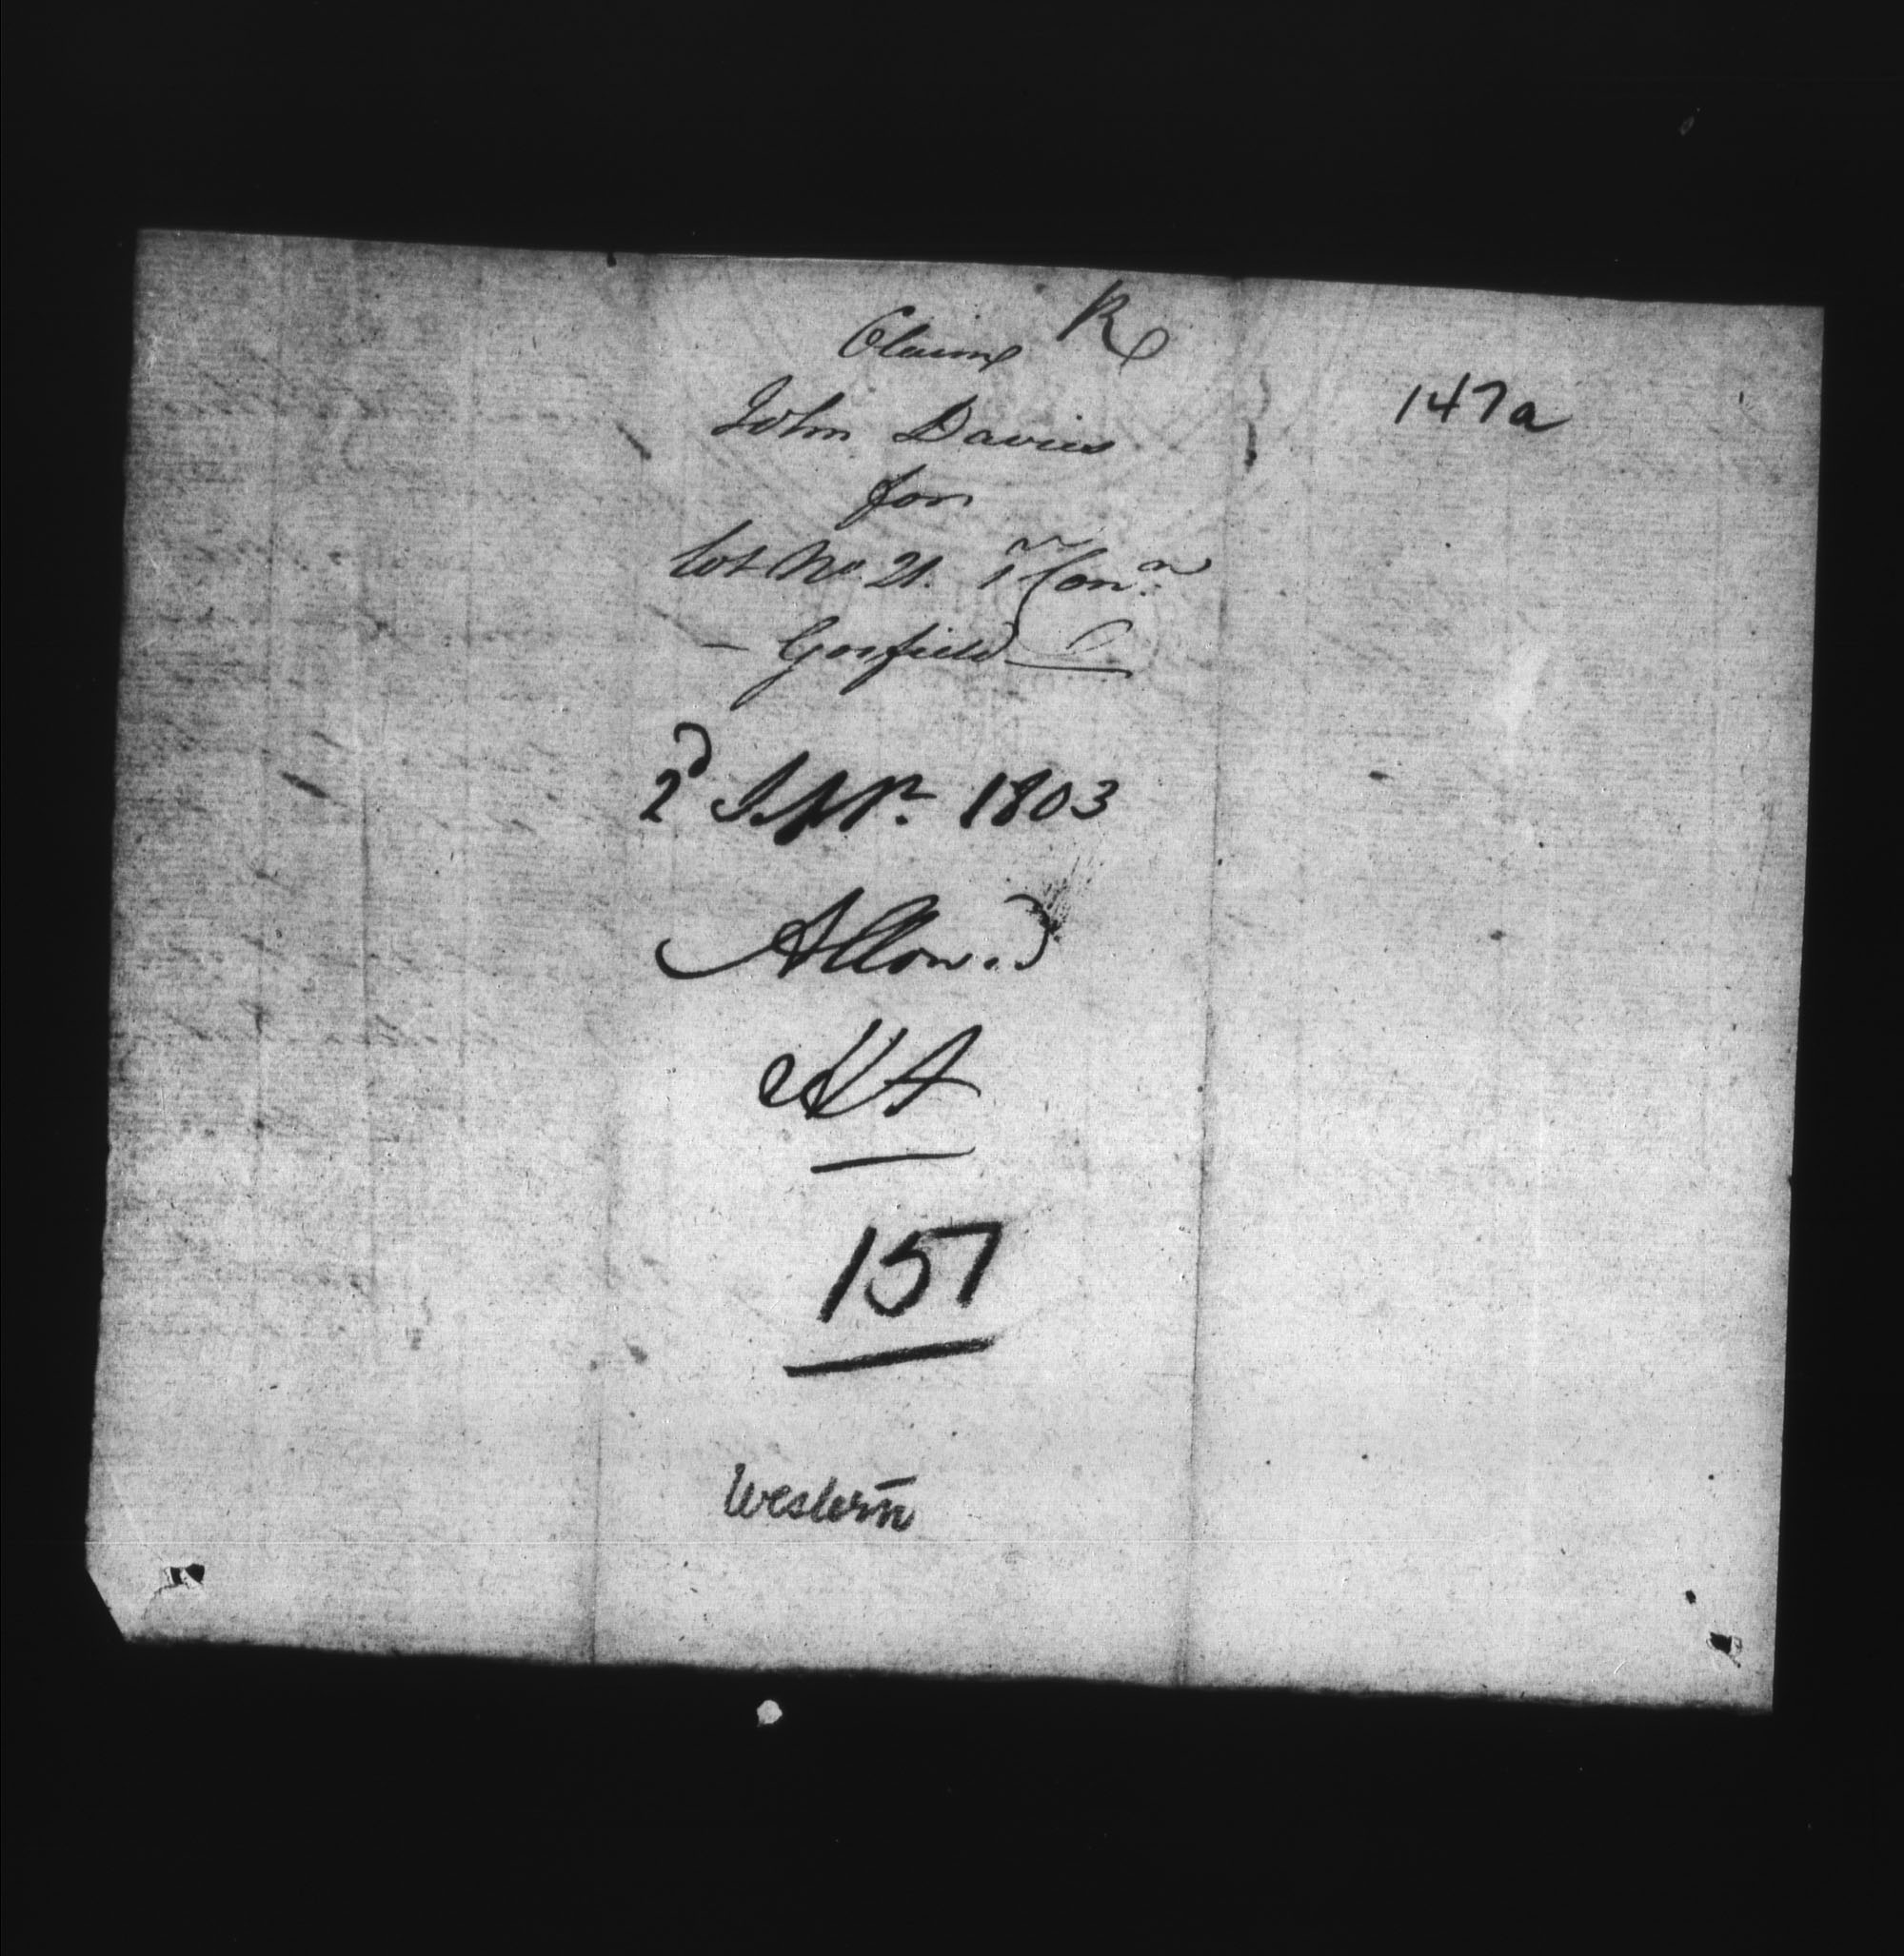 R
Claim
John Davies
for
Lot No 21. 1st Conn.
Gosfield
2d Sepr. 1803
Allow.d
157
Western
147a